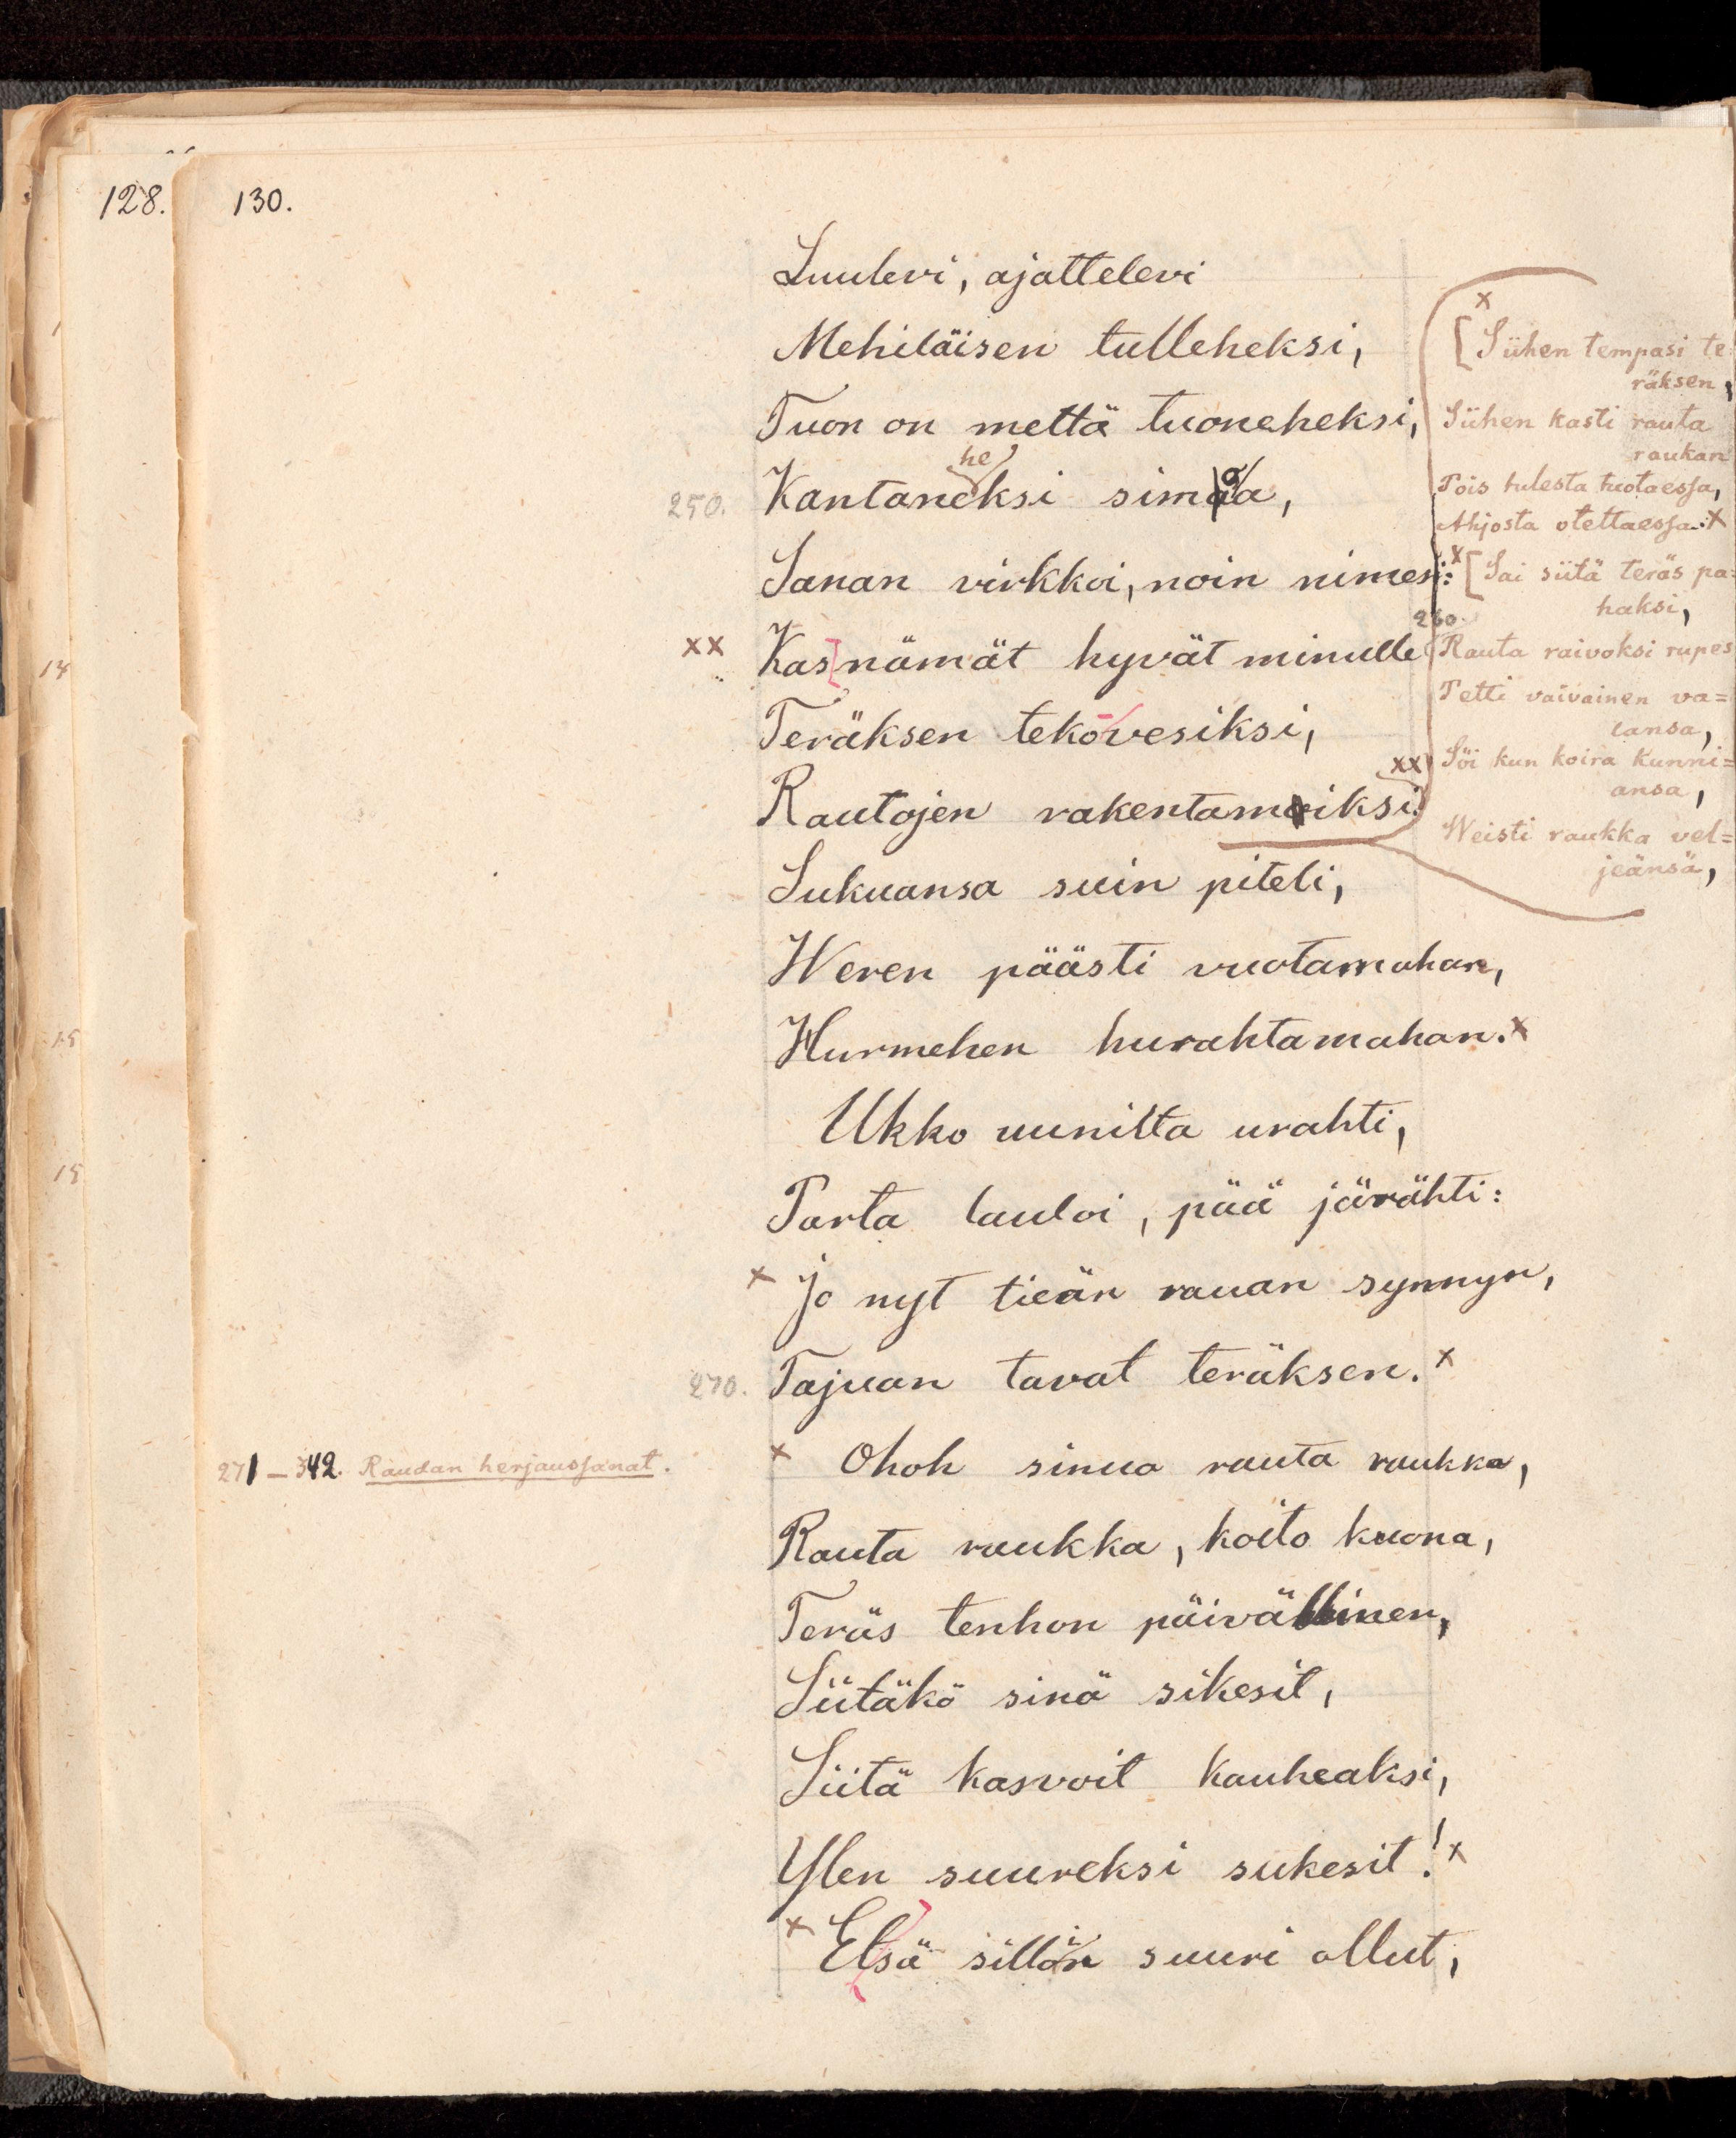 128.
130.
Luulevi, ajattelevi
Mehiläisen tulleheksi,
Tuon on mettä tuoneheksi,
he
250. Kantaneksi simoa,
Sanan virkkoi, noin nimesi:
xx Kas nämät hyvät minulle
Teräksen tekovesiksi,
Rautojen rakentamiksi. xx
Sukuansa suin piteli,
Weren päästi vuotamahan,
Hurmehen hurahtamahan. x
Ukko uunilta urahti,
Parta lauloi, pää järähti:
x Jo nyt tieän rauan synnyn,
270. Tajuan tavat teräksen. x
271–342. Raudan herjaussanat.
x Ohoh sinua rauta raukka,
Rauta raukka, koito kuona,
Teräs tenhon päivällinen,
Siitäkö sinä sikesit,
Siitä kasvoit kauheaksi,
Ylen suureksi sukesit! x
x Etsä silloin suuri ollut,
x
[Siihen tempasi te-
räksen,
Siihen kasti rauta
raukan
Pois tulesta tuotaessa,
Ahjosta otettaessa. x
x [Sai siitä teräs pa-
haksi,
260. Rauta raivoksi rupes
Petti vaivainen va=
lansa,
Söi kun koira kunni=
ansa,
Weisti raukka vel=
jeänsä,
14
15
15